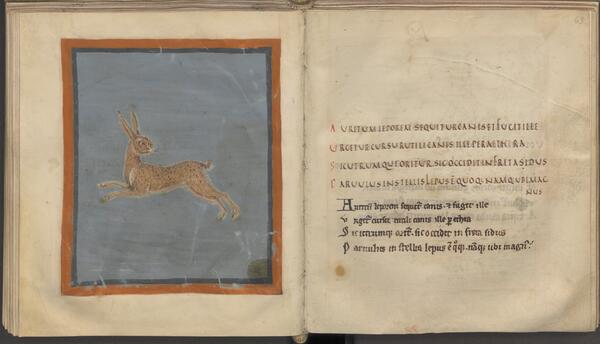 63
AURITUM LEPOREM SEQUITUR CANIS ET FUGIT ILLE
URGETUR CURSU RUTILI CANIS ILLE PER AETHRA
SIC UTRUMQUE ORITUR SIC OCCIDIT IN FRETA SIDUS
PARUULUS IN STELLIS LEPUS Ē QUOQ; NAMQUE UBI MAG
NUS
Auritū leporem sequit᷑ canis et fugit ille
Urget᷑ cursu rutili canis ille p ethra
Sic utrumq; orit᷑ sic occidit in freta sidus
Paruulus in stellis lepus ē qq; nāq; ubi magn᷒